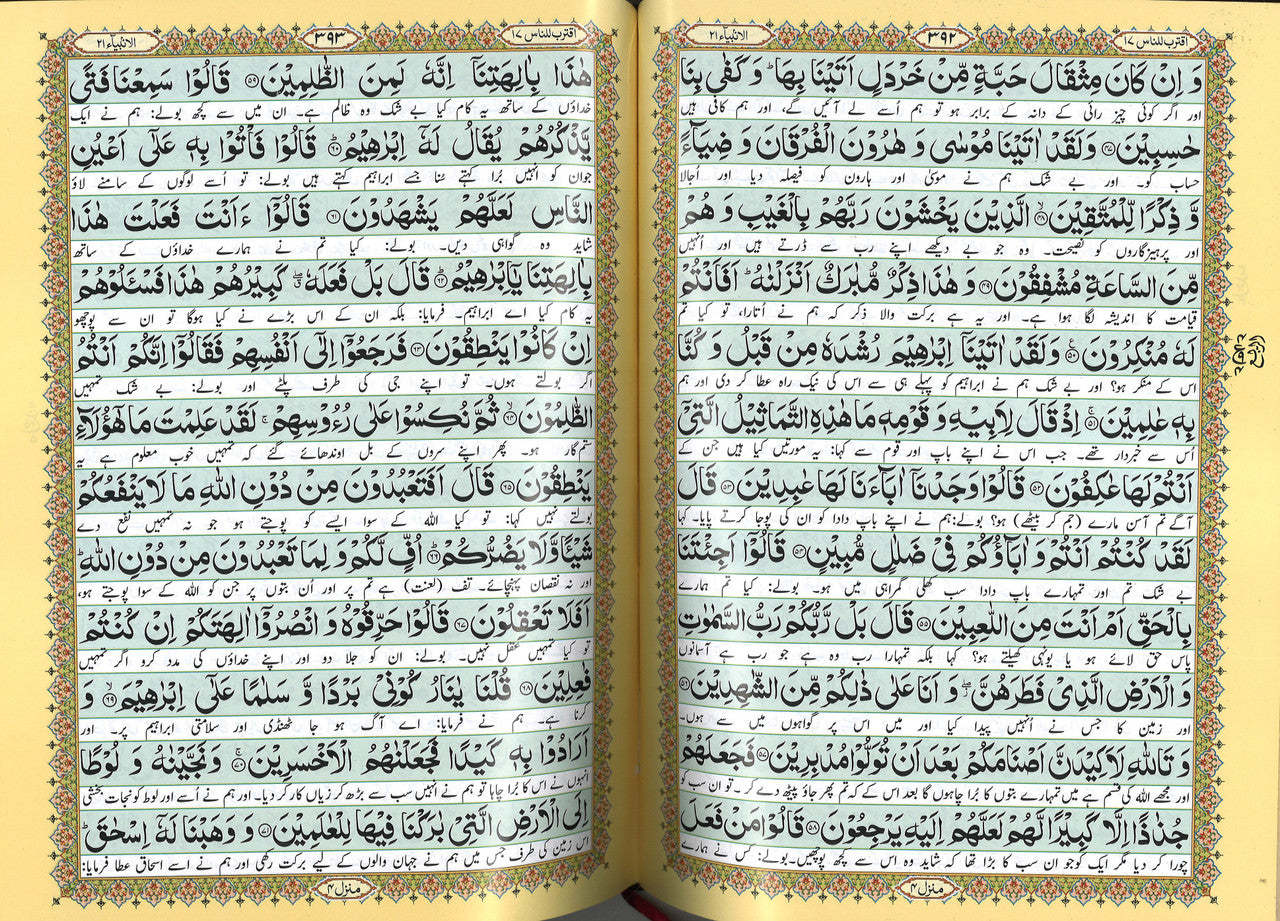 اقترب للناس ۱۷
۳۹۲
الانبیآء ۲۱
وَ اِنْ كَانَ مِثْقَالَ حَبَّةٍ مِّنْ خَرْدَلٍ اَتَيْنَا بِهَا ؕ وَ كَفٰى بِنَا
اور اگر کوئی چیز رائی کے دانہ کے برابر ہو تو ہم اُسے لے آئیں گے، اور ہم کافی ہیں
حٰسِبِيْنَ ﴿۴۷﴾ وَ لَقَدْ اٰتَيْنَا مُوْسٰى وَ هٰرُوْنَ الْفُرْقَانَ وَ ضِيَآءً
حساب کو۔ اور بے شک ہم نے موسیٰ اور ہارون کو فیصلہ دیا اور اُجالا
وَّ ذِكْرًا لِّلْمُتَّقِيْنَ ﴿۴۸﴾ۙ الَّذِيْنَ يَخْشَوْنَ رَبَّهُمْ بِالْغَيْبِ وَ هُمْ
اور پرہیزگاروں کو نصیحت۔ وہ جو بے دیکھے اپنے رب سے ڈرتے ہیں اور اُنہیں
مِّنَ السَّاعَةِ مُشْفِقُوْنَ ﴿۴۹﴾ وَ هٰذَا ذِكْرٌ مُّبٰرَكٌ اَنْزَلْنٰهُ ؕ اَفَاَنْتُمْ
قیامت کا اندیشہ لگا ہوا ہے۔ اور یہ ہے برکت والا ذکر کہ ہم نے اُتارا، تو کیا تم
لَهٗ مُنْكِرُوْنَ ﴿۵۰﴾ۧ وَ لَقَدْ اٰتَيْنَاۤ اِبْرٰهِيْمَ رُشْدَهٗ مِنْ قَبْلُ وَ كُنَّا
اس کے منکر ہو؟ اور بے شک ہم نے ابراہیم کو پہلے ہی سے اس کی نیک راہ عطا کر دی اور ہم
بِهٖ عٰلِمِيْنَ ﴿۵۱﴾ۚ اِذْ قَالَ لِاَبِيْهِ وَ قَوْمِهٖ مَا هٰذِهِ التَّمَاثِيْلُ الَّتِيْۤ
اُس سے خبردار تھے۔ جب اس نے اپنے باپ اور قوم سے کہا: یہ مورتیں کیا ہیں جن کے
اَنْتُمْ لَهَا عٰكِفُوْنَ ﴿۵۲﴾ قَالُوْا وَجَدْنَاۤ اٰبَآءَنَا لَهَا عٰبِدِيْنَ ﴿۵۳﴾ قَالَ
آگے تم آسن مارے (جم کر بیٹھے) ہو؟ بولے: ہم نے اپنے باپ دادا کو ان کی پوجا کرتے پایا۔ کہا
لَقَدْ كُنْتُمْ اَنْتُمْ وَ اٰبَآؤُكُمْ فِيْ ضَلٰلٍ مُّبِيْنٍ ﴿۵۴﴾ قَالُوْۤا اَجِئْتَنَا
بے شک تم اور تمہارے باپ دادا سب کھلی گمراہی میں ہو۔ بولے: کیا تم ہمارے
بِالْحَقِّ اَمْ اَنْتَ مِنَ اللّٰعِبِيْنَ ﴿۵۵﴾ قَالَ بَلْ رَّبُّكُمْ رَبُّ السَّمٰوٰتِ
پاس حق لائے ہو یا یونہی کھیلتے ہو؟ کہا بلکہ تمہارا رب وہ ہے جو رب ہے آسمانوں
وَ الْاَرْضِ الَّذِيْ فَطَرَهُنَّ ۖؗ وَ اَنَا عَلٰى ذٰلِكُمْ مِّنَ الشّٰهِدِيْنَ ﴿۵۶﴾
اور زمین کا جس نے اُنہیں پیدا کیا اور میں اس پر گواہوں میں سے ہوں۔
وَ تَاللّٰهِ لَاَكِيْدَنَّ اَصْنَامَكُمْ بَعْدَ اَنْ تُوَلُّوْا مُدْبِرِيْنَ ﴿۵۷﴾ فَجَعَلَهُمْ
اور مجھے اللہ کی قسم ہے میں تمہارے بتوں کا بُرا چاہوں گا بعد اس کے کہ تم پھر جاؤ پیٹھ دے کر۔ تو ان سب کو
جُذٰذًا اِلَّا كَبِيْرًا لَّهُمْ لَعَلَّهُمْ اِلَيْهِ يَرْجِعُوْنَ ﴿۵۸﴾ قَالُوْا مَنْ فَعَلَ
چورا کر دیا مگر ایک کو جو ان سب کا بڑا تھا کہ شاید وہ اس سے کچھ پوچھیں۔ بولے: کس نے ہمارے
منزل ۴
اقترب للناس ۱۷
۳۹۳
الانبیآء ۲۱
هٰذَا بِاٰلِهَتِنَاۤ اِنَّهٗ لَمِنَ الظّٰلِمِيْنَ ﴿۵۹﴾ قَالُوْا سَمِعْنَا فَتًى
خداؤں کے ساتھ یہ کام کیا بے شک وہ ظالم ہے۔ ان میں سے کچھ بولے: ہم نے ایک
يَّذْكُرُهُمْ يُقَالُ لَهٗۤ اِبْرٰهِيْمُ ﴿۶۰﴾ؕ قَالُوْا فَاْتُوْا بِهٖ عَلٰۤى اَعْيُنِ
جوان کو انہیں بُرا کہتے سُنا جسے ابراہیم کہتے ہیں بولے: تو اُسے لوگوں کے سامنے لاؤ
النَّاسِ لَعَلَّهُمْ يَشْهَدُوْنَ ﴿۶۱﴾ قَالُوْۤا ءَاَنْتَ فَعَلْتَ هٰذَا
شاید وہ گواہی دیں۔ بولے: کیا تم نے ہمارے خداؤں کے ساتھ
بِاٰلِهَتِنَا يٰۤاِبْرٰهِيْمُ ﴿۶۲﴾ؕ قَالَ بَلْ فَعَلَهٗ ۖۗ كَبِيْرُهُمْ هٰذَا فَسْـَٔلُوْهُمْ
یہ کام کیا اے ابراہیم۔ فرمایا: بلکہ ان کے اس بڑے نے کیا ہوگا تو ان سے پوچھو
اِنْ كَانُوْا يَنْطِقُوْنَ ﴿۶۳﴾ فَرَجَعُوْۤا اِلٰۤى اَنْفُسِهِمْ فَقَالُوْۤا اِنَّكُمْ اَنْتُمُ
اگر بولتے ہوں۔ تو اپنے جی کی طرف پلٹے اور بولے: بے شک تمہیں
الظّٰلِمُوْنَ ﴿۶۴﴾ۙ ثُمَّ نُكِسُوْا عَلٰى رُءُوْسِهِمْ ۚ لَقَدْ عَلِمْتَ مَا هٰۤؤُلَآءِ
ستمگار ہو۔ پھر اپنے سروں کے بل اوندھائے گئے کہ تمہیں خوب معلوم ہے یہ
يَنْطِقُوْنَ ﴿۶۵﴾ قَالَ اَفَتَعْبُدُوْنَ مِنْ دُوْنِ اللّٰهِ مَا لَا يَنْفَعُكُمْ
بولتے نہیں کہا: تو کیا اللہ کے سوا ایسے کو پوجتے ہو جو نہ تمہیں نفع دے
شَيْـًٔا وَّ لَا يَضُرُّكُمْ ﴿۶۶﴾ؕ اُفٍّ لَّكُمْ وَ لِمَا تَعْبُدُوْنَ مِنْ دُوْنِ اللّٰهِ ؕ
اور نہ نقصان پہنچائے۔ تف (لعنت) ہے تم پر اور اُن بتوں پر جن کو اللہ کے سوا پوجتے ہو،
اَفَلَا تَعْقِلُوْنَ ﴿۶۷﴾ قَالُوْا حَرِّقُوْهُ وَ انْصُرُوْۤا اٰلِهَتَكُمْ اِنْ كُنْتُمْ
تو کیا تمہیں عقل نہیں۔ بولے: ان کو جلا دو اور اپنے خداؤں کی مدد کرو اگر تمہیں
فٰعِلِيْنَ ﴿۶۸﴾ قُلْنَا يٰنَارُ كُوْنِيْ بَرْدًا وَّ سَلٰمًا عَلٰۤى اِبْرٰهِيْمَ ﴿۶۹﴾ۙ وَ
کرنا ہے۔ ہم نے فرمایا: اے آگ ہو جا ٹھنڈی اور سلامتی ابراہیم پر۔ اور
اَرَادُوْا بِهٖ كَيْدًا فَجَعَلْنٰهُمُ الْاَخْسَرِيْنَ ﴿۷۰﴾ۚ وَ نَجَّيْنٰهُ وَ لُوْطًا
انہوں نے اس کا بُرا چاہا تو ہم نے انہیں سب سے بڑھ کر زیاں کار کر دیا۔ اور ہم نے اُسے اور لوط کو نجات بخشی
اِلَى الْاَرْضِ الَّتِيْ بٰرَكْنَا فِيْهَا لِلْعٰلَمِيْنَ ﴿۷۱﴾ وَ وَهَبْنَا لَهٗۤ اِسْحٰقَ ؕ
اس زمین کی طرف جس میں ہم نے جہان والوں کے لیے برکت رکھی اور ہم نے اسے اسحاق عطا فرمایا:
منزل ۴